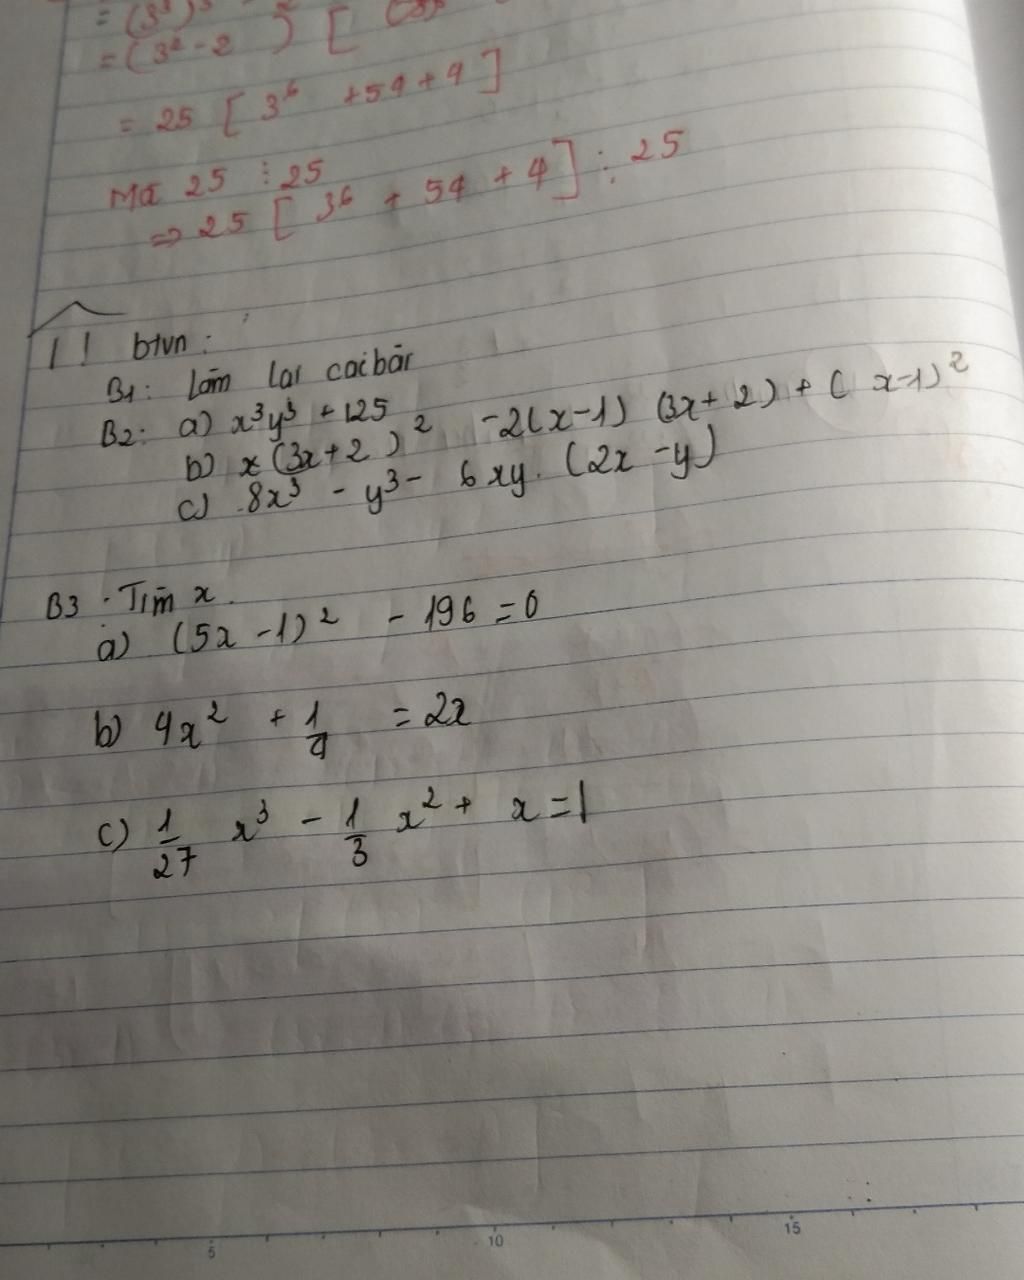 = (3³)³
= (3² - 2 ) [
= 25 [ 3⁶ + 54 + 4 ]
Mà 25 ⋮ 25
⇒ 25 [ 3⁶ + 54 + 4 ] ⋮ 25
!! btvn :
B1: Làm lại các bài
B2: a) x³y³ + 125
b) x (3x + 2 )² - 2(x - 1) (3x + 2) + ( x - 1)²
c) 8x³ - y³ - 6xy. (2x - y)
B3 . Tìm x.
a) (5x - 1)² - 196 = 0
b) 4x² + 1/4 = 2x
c) 1/27 x³ - 1/3 x² + x = 1
5 10 15